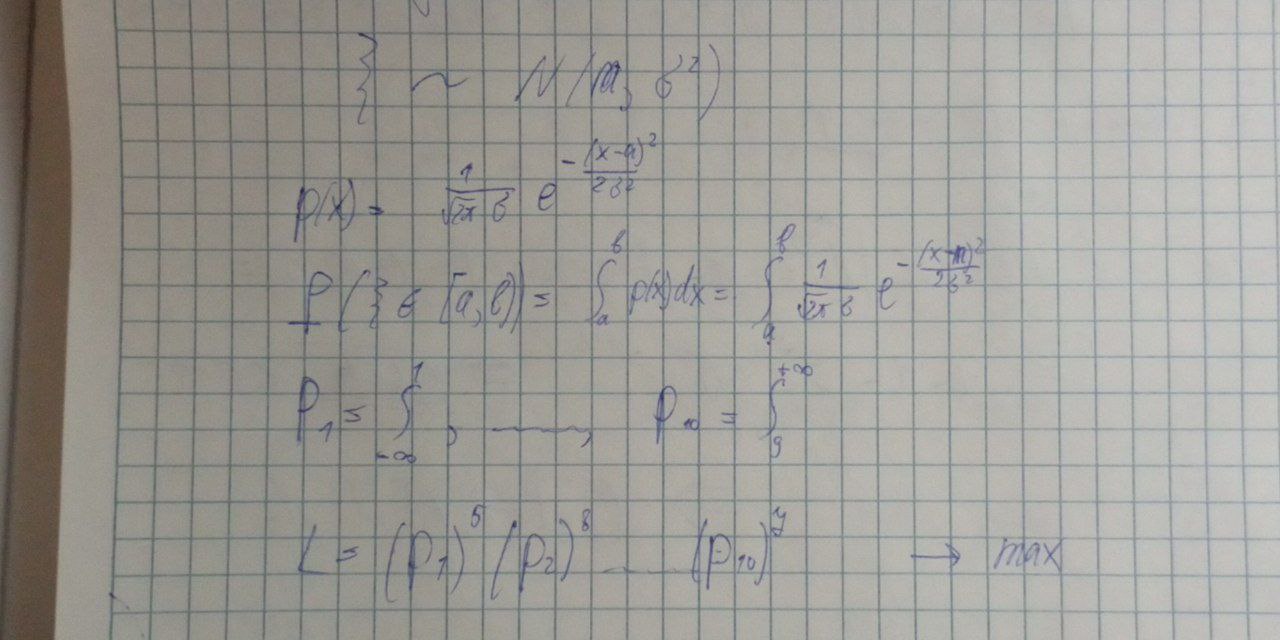 ξ ~ N(m, σ²)
p(x) = 1/(√2π σ) e^(-(x-a)²/(2σ²))
P(ξ ∈ [a, b)) = ∫_a^b p(x)dx = ∫_a^b 1/(√2π σ) e^(-(x-m)²/(2σ²))
P₁ = ∫_{-∞}^1 , ——, P₁₀ = ∫_9^{+∞}
L = (P₁)⁵ (P₂)⁸ ..... (P₁₀)⁷ → max